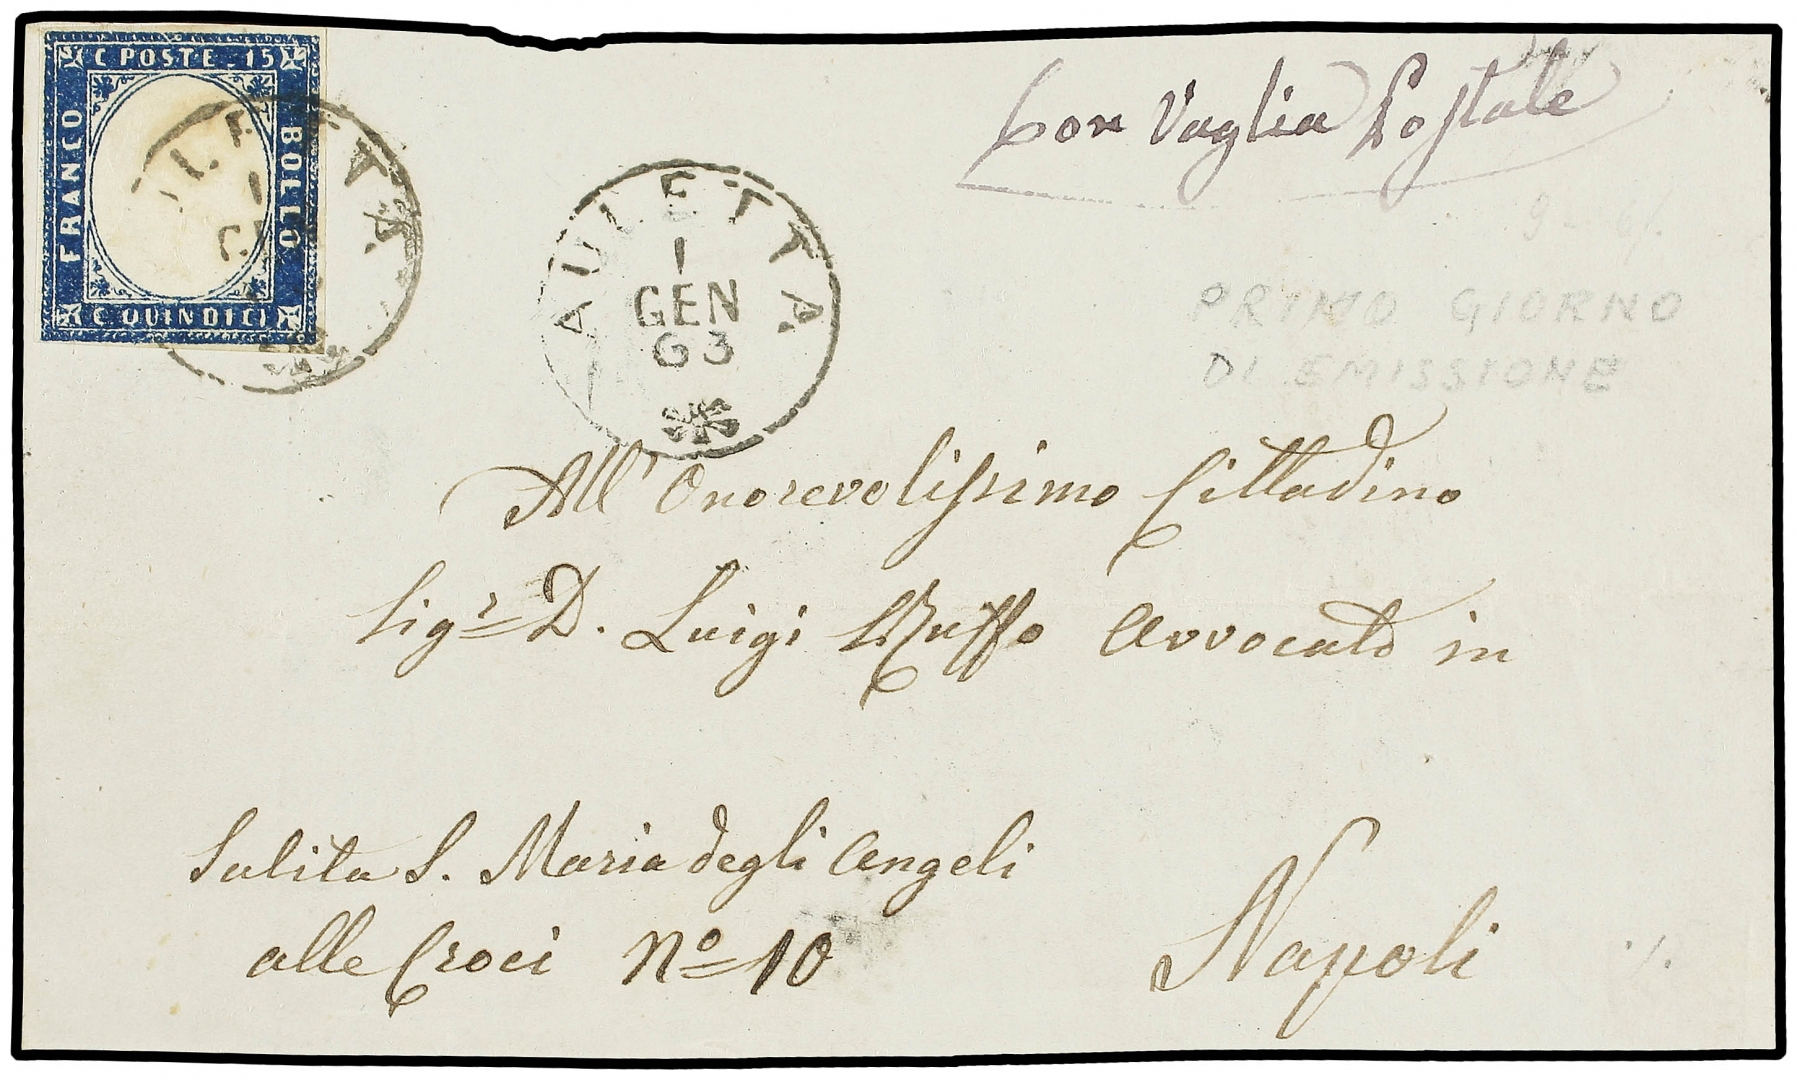 C POSTE - 15
FRANCO
BOLLO
C. QUINDICI
AULETTA
1
GEN
63
Con Vaglia Postale
PRIMO GIORNO
DI EMISSIONE
All' Onorevolissimo Cittadino
Sigr. D. Luigi Ruffo Avvocato in
Salita S. Maria degli Angeli
alle Croci No 10
Napoli